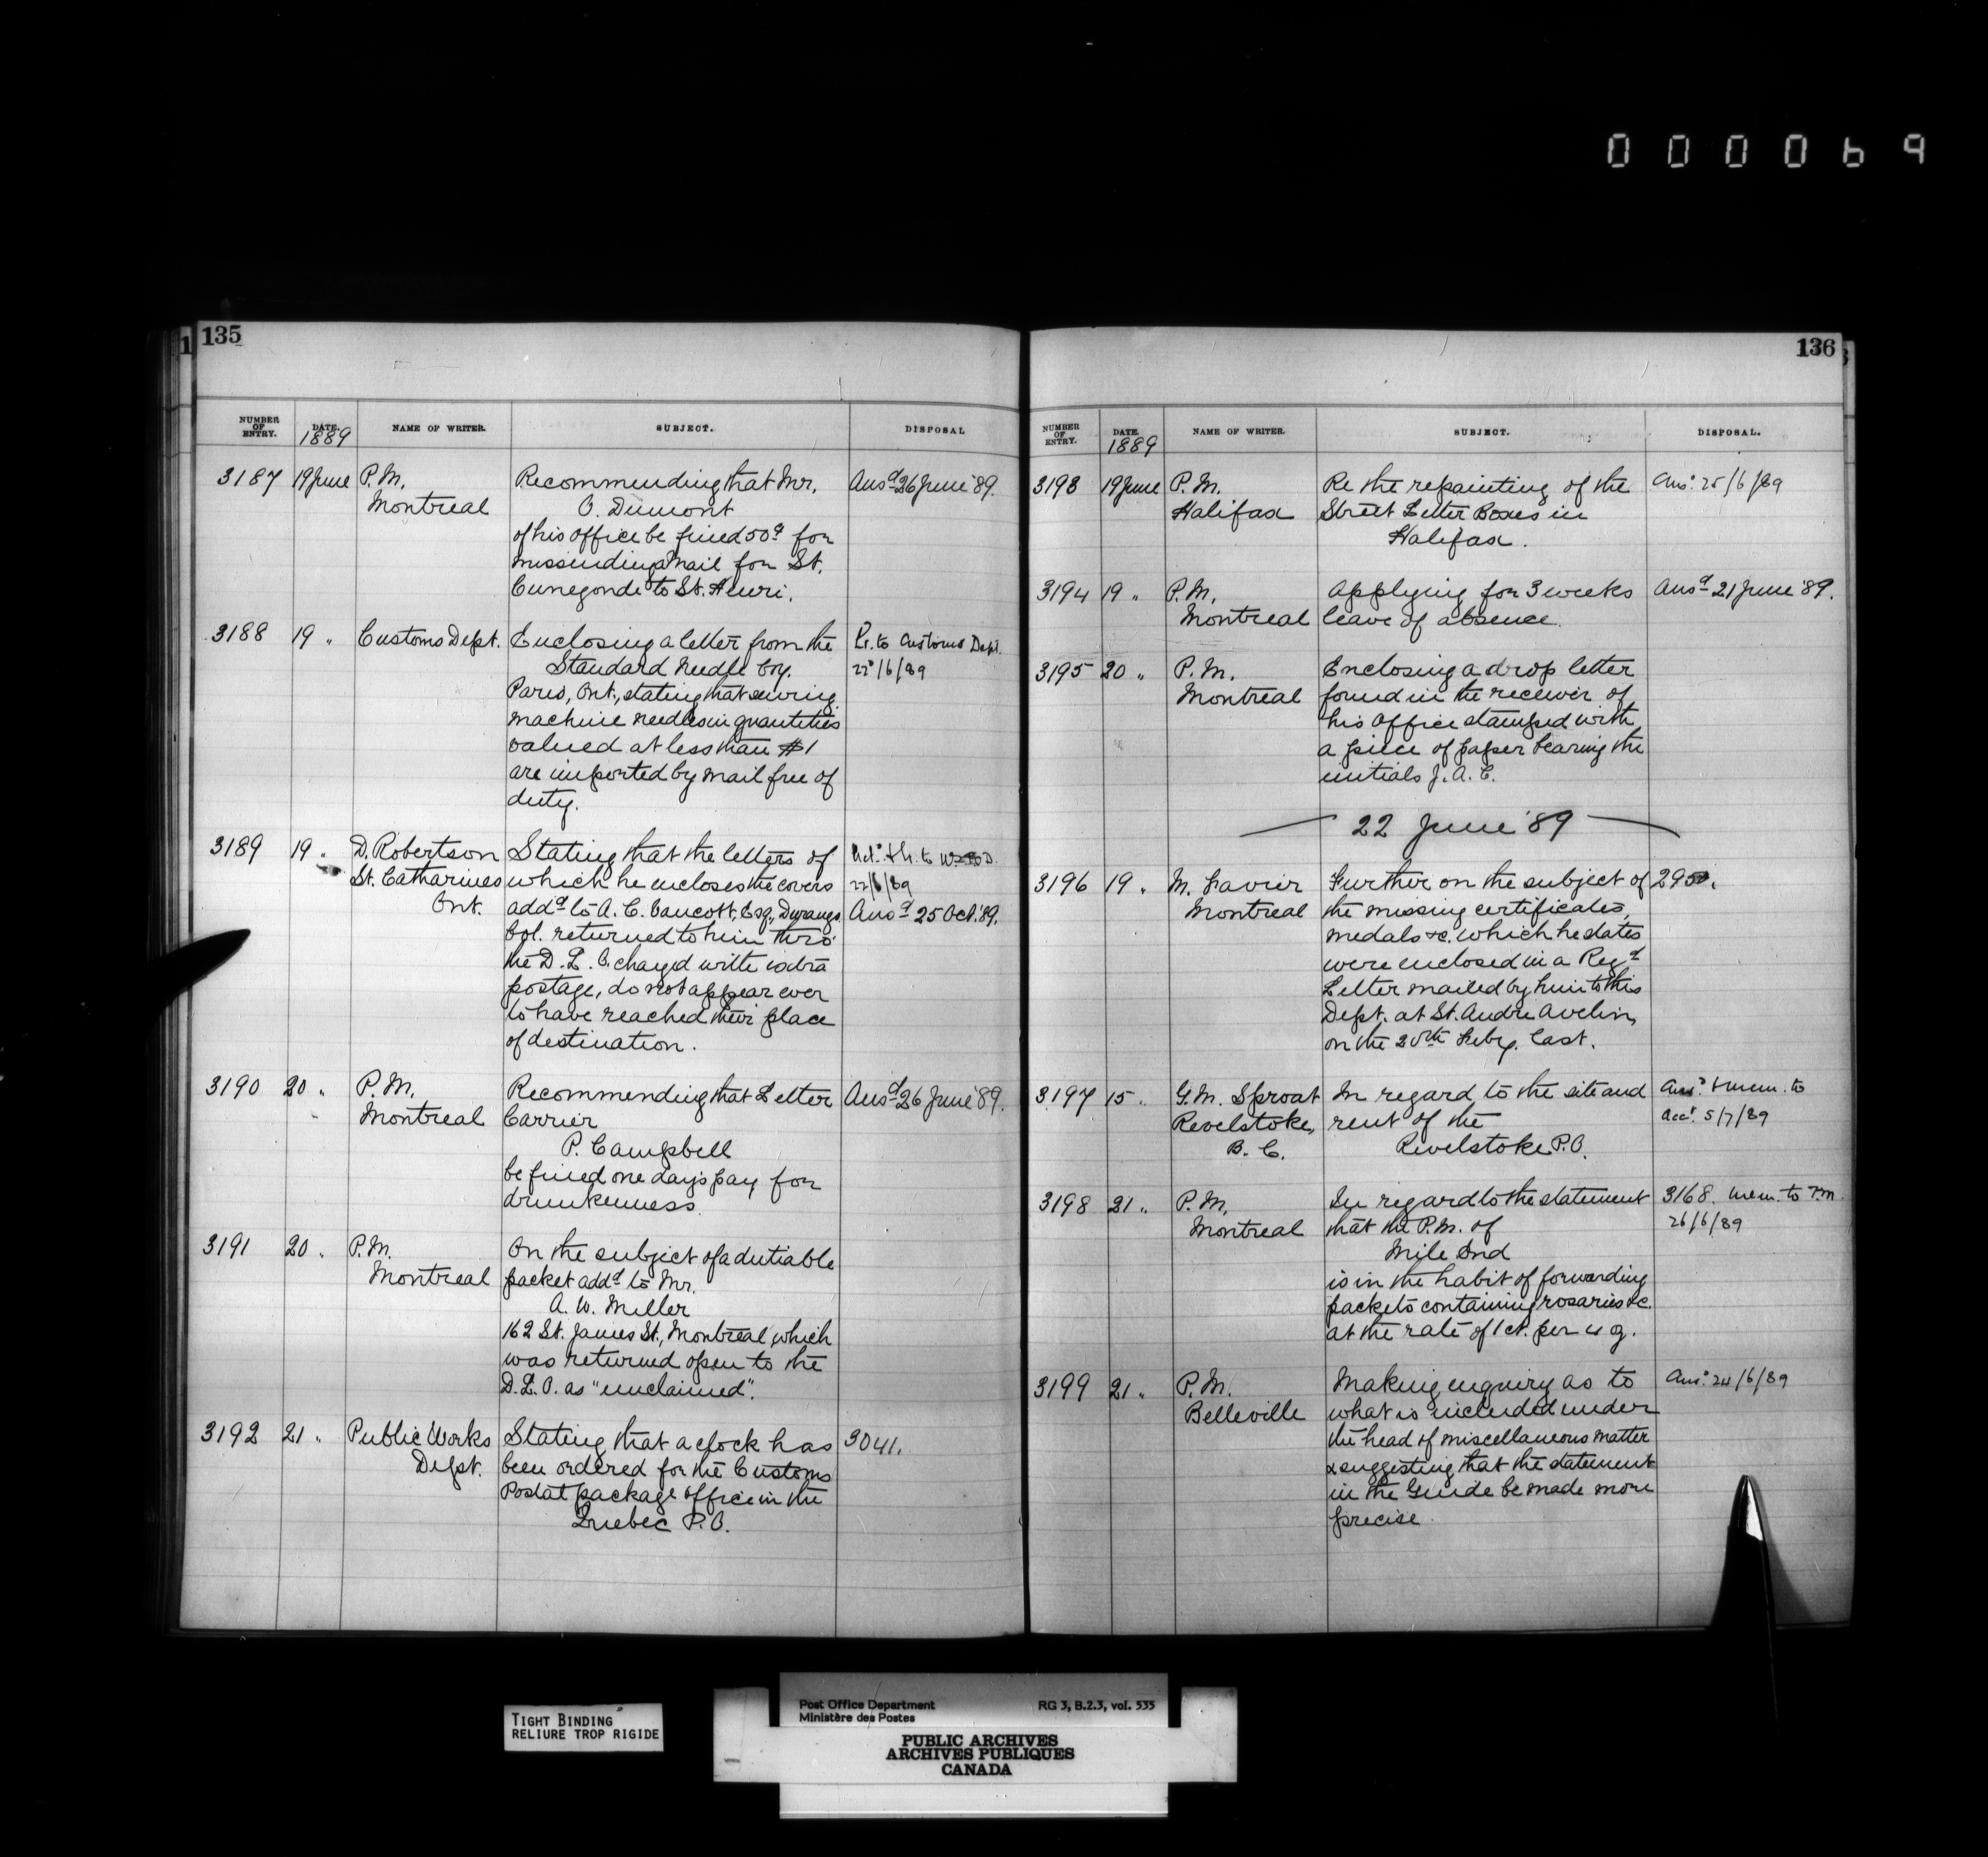 000069
135
NUMBER OF ENTRY. DATE. 1889 NAME OF WRITER. SUBJECT. DISPOSAL
3187 19 June P.M. Recommending that Mr. Ansd 26 June '89.
Montreal O. Dumont
of his office be fined 50c for
missending a mail for St.
Cunegonde to St. Henri.
3188 19 " Customs Dept. Enclosing a letter from the Lr. to Customs Dept.
Standard Needle Coy. 22/6/89
Paris, Ont., stating that sewing
machine needles in quantities
valued at less than $1
are imported by mail free of
duty.
3189 19 " D. Robertson Stating that the letters of
St. Catharines which he encloses the covers 22/6/89
Ont. addd to A. C. Esq., Durango Ansd 25 Oct. '89.
Col. returned to him thro'
the D. L. O. charged with extra
postage, do not appear ever
to have reached their place
of destination.
3190 20 " P.M. Recommending that Letter Ansd 26 June '89.
Montreal Carrier
P. Campbell
be fined one day's pay for
drunkenness.
3191 20 " P.M. On the subject of a dutiable
Montreal packet addd to Mr.
A. W. Miller
162 St. James St., Montreal, which
was returned open to the
D. L. O. as "unclaimed".
3192 21 " Public Works Stating that a clock has 3041.
Dept. been ordered for the Customs
Postal package office in the
Quebec P.O.
136
NUMBER OF ENTRY. DATE. 1889 NAME OF WRITER. SUBJECT. DISPOSAL.
3193 19 June P.M. Re the repainting of the Ansd 25/6/89
Halifax Street Letter Boxes in
Halifax.
3194 19 " P.M. Applying for 3 weeks Ansd 21 June '89.
Montreal leave of absence.
3195 20 " P.M. Enclosing a drop letter
Montreal found in the receiver of
his office stamped with
a piece of paper bearing the
initials J. A. C.
22 June '89
3196 19 " M. Further on the subject of
Montreal the missing certificates,
medals &c. which he states
were enclosed in a Regd
Letter mailed by him to this
Dept. at St. Andre Avelin,
on the 20th Feby. last.
3197 15 " G. M. Sproat In regard to the site and Ansd & mem. to
Revelstoke, rent of the Acct. 5/7/89
B. C. Revelstoke P.O.
3198 21 " P.M. In regard to the statement 3168. Mem. to P.M.
Montreal that the P.M. of 26/6/89
Mile End
is in the habit of forwarding
packets containing rosaries &c.
at the rate of 1 ct. per 4 oz.
3199 21 " P.M. Making enquiry as to Ansd 24/6/89
Belleville what is included under
the head of miscellaneous matter
& suggesting that the statement
in the Guide be made more
precise
TIGHT BINDING
RELIURE TROP RIGIDE
Post Office Department RG 3, B.2.3, vol. 535
Ministère des Postes
PUBLIC ARCHIVES
ARCHIVES PUBLIQUES
CANADA